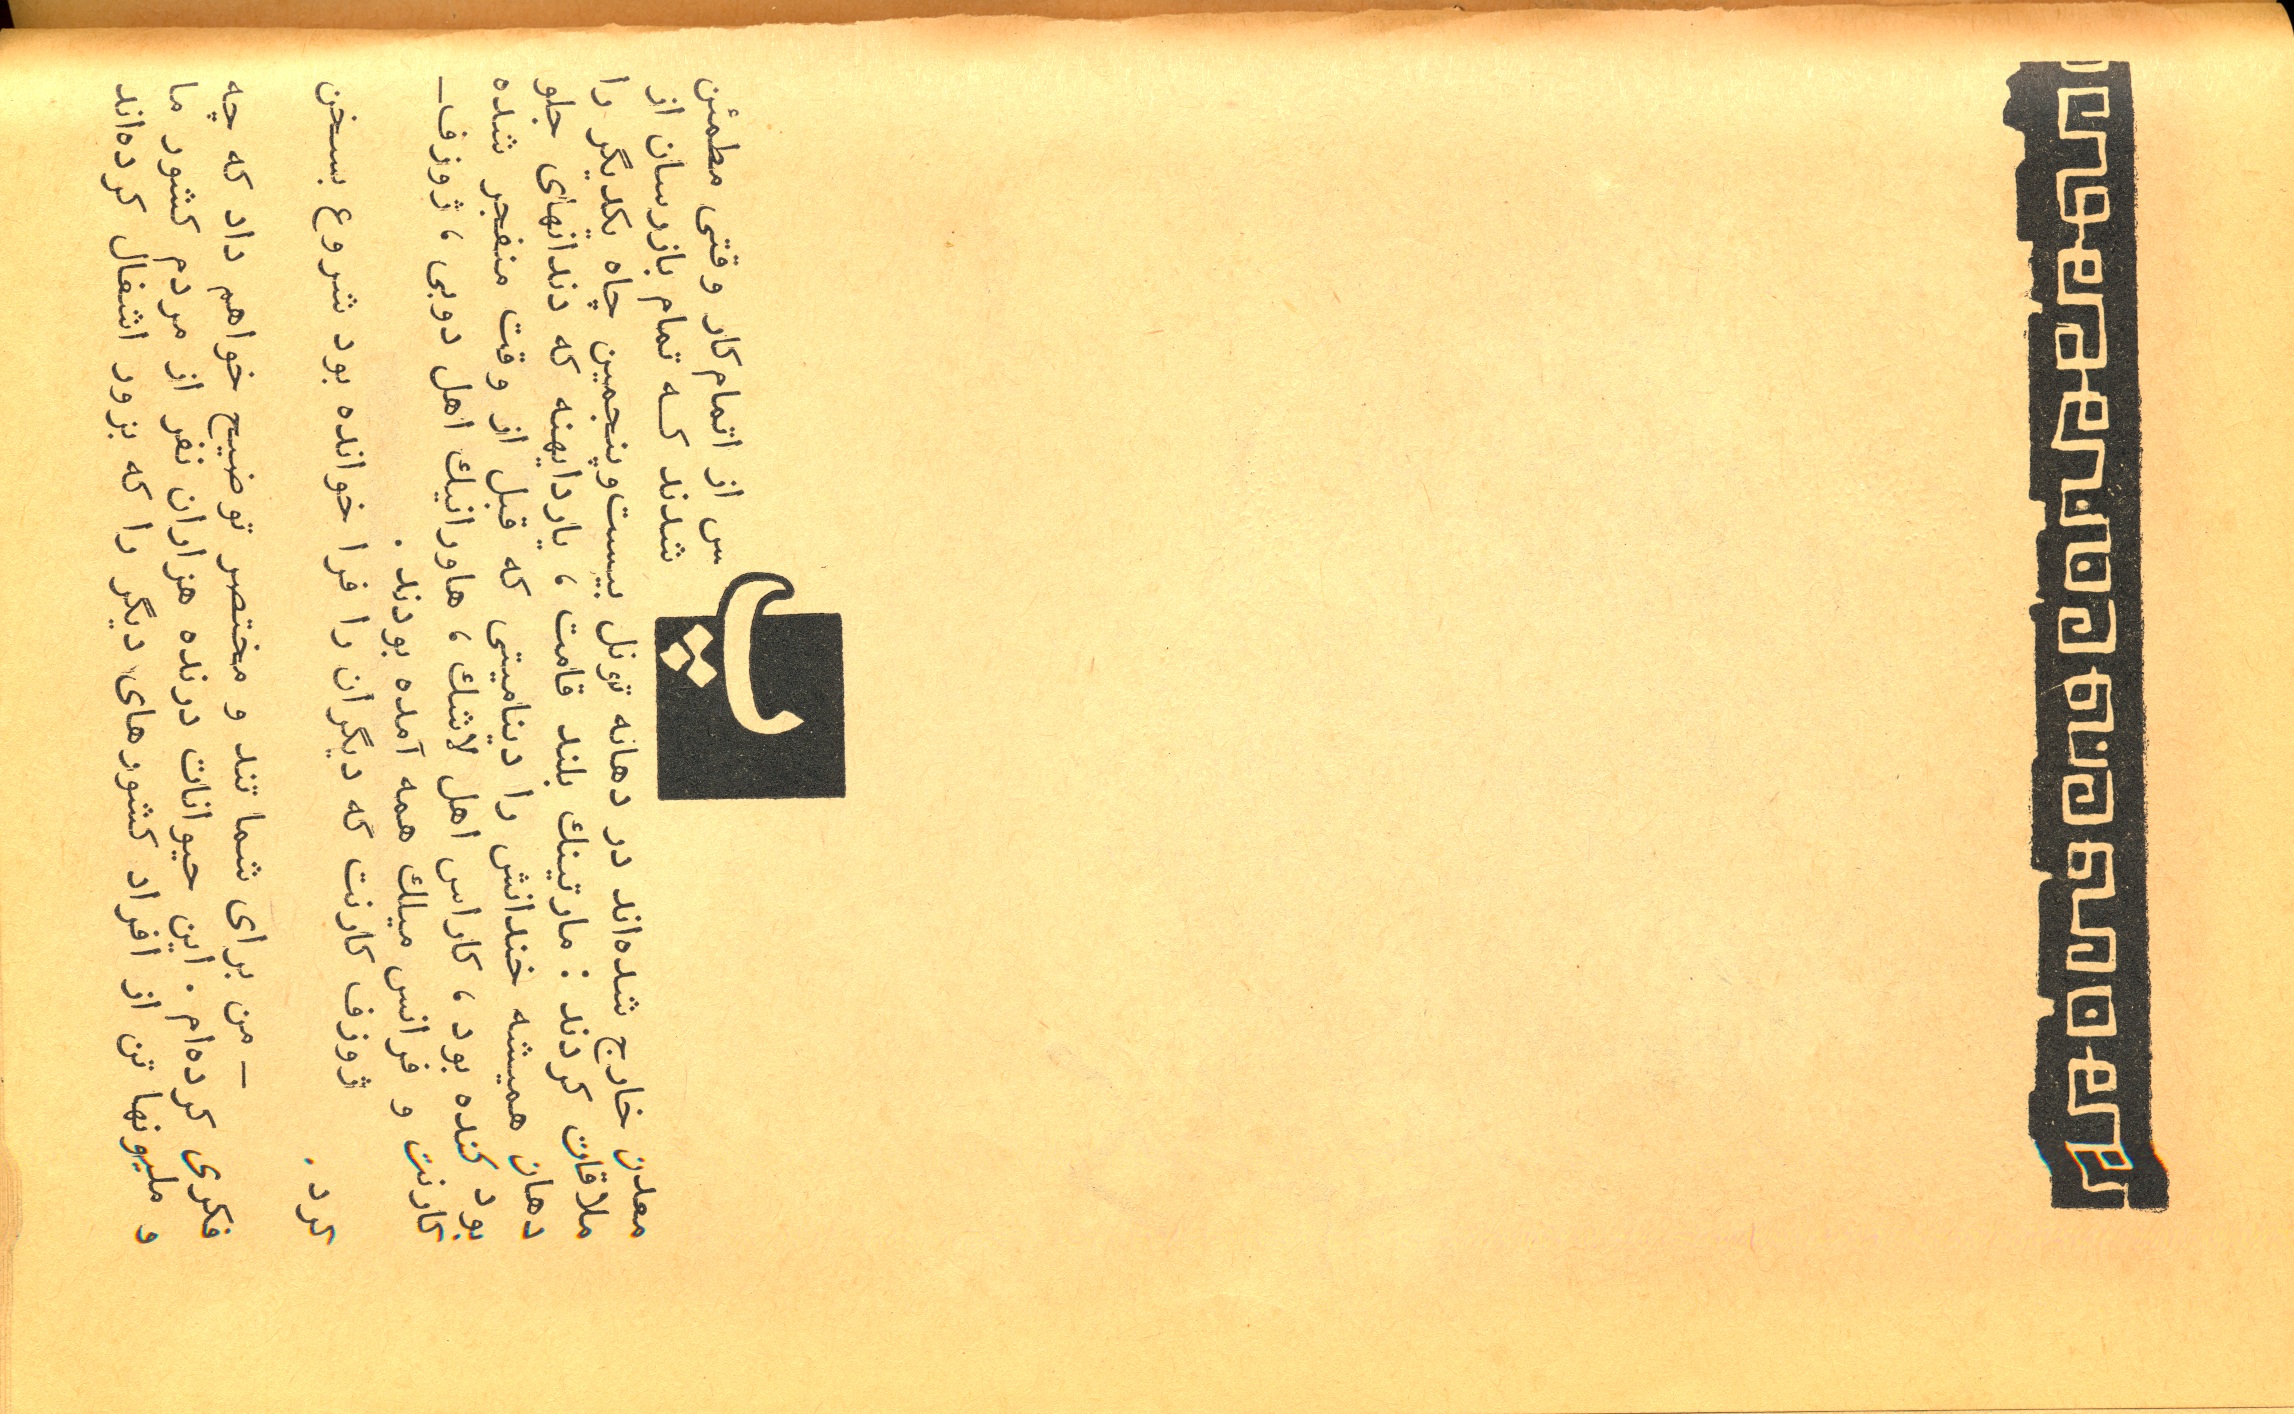 پس از اتمام کار وقتی مطمئن
شدند کـه تمام بازرسان از
معدن خارج شده‌اند در دهانه تونل بیست‌وپنجمین چاه یکدیگر را
ملاقات کردند : مارتینك بلند قامت ، یاردایهنه که دندانهای جلو
دهان همیشه خندانش را دینامیتی که قبل از وقت منفجر شده
بود کنده بود ، کاراس اهل لاشك ، هاورانیك اهل دوبی ، ژوزف‌ـ
کارنت و فرانس میلك همه آمده بودند .
ژوزف کارنت که دیگران را فرا خوانده بود شروع بسخن
کرد .
ـ من برای شما تند و مختصر توضیح خواهم داد که چه
فکری کرده‌ام . این حیوانات درنده هزاران نفر از مردم کشور ما
و ملیونها تن از افراد کشورهای دیگر را که بزور اشغال کرده‌اند